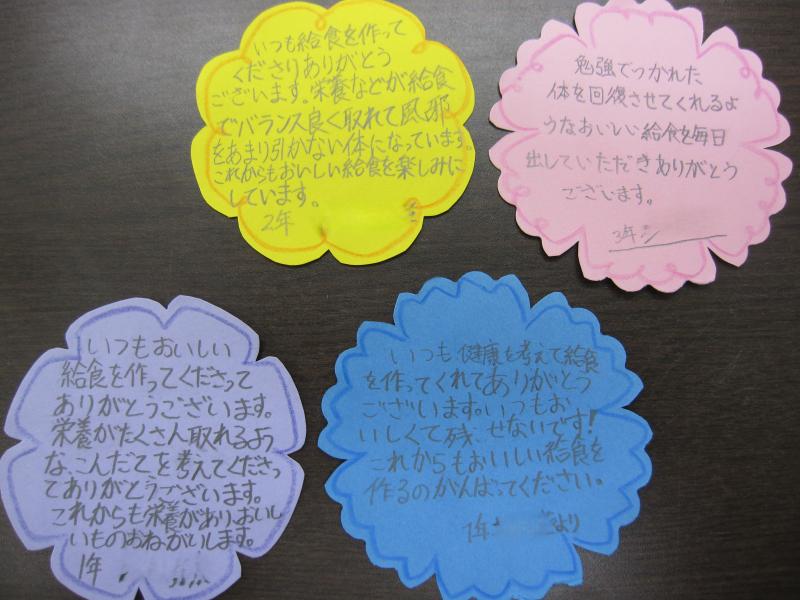 いつも給食を作って
くださりありがとう
ございます。栄養などが給食
でバランス良く取れて風邪
をあまり引かない体になっています。
これからもおいしい給食を楽しみに
しています。
2年
勉強でつかれた
体を回復させてくれるよ
うなおいしい給食を毎日
出していただきありがとう
ございます。
3年
いつもおいしい
給食を作ってくださって
ありがとうございます。
栄養がたくさん取れるよう
な、こんだてを考えてくださっ
てありがとうございます。
これからも栄養がありおいし
いものおねがいします。
1年
いつも健康を考えて給食
を作ってくれてありがとう
ございます。いつもお
いしくて残せないです!
これからもおいしい給食を
作るのがんばってください。
1年 より